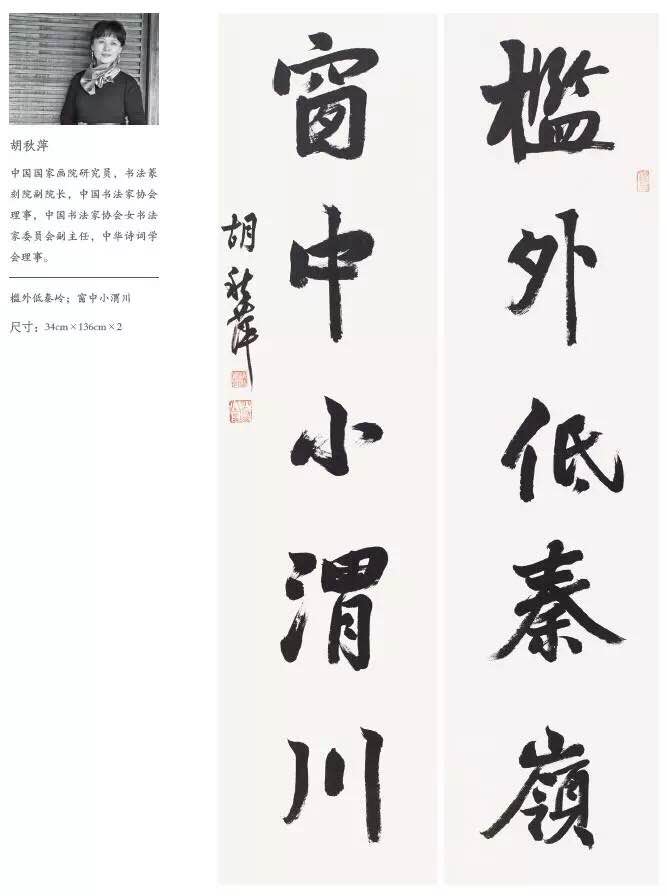 胡秋萍
中国国家画院研究员，书法篆
刻院副院长，中国书法家协会
理事，中国书法家协会女书法
家委员会副主任，中华诗词学
会理事。
槛外低秦岭；窗中小渭川
尺寸：34cm×136cm×2
檻外低秦嶺
窗中小渭川
胡秋萍